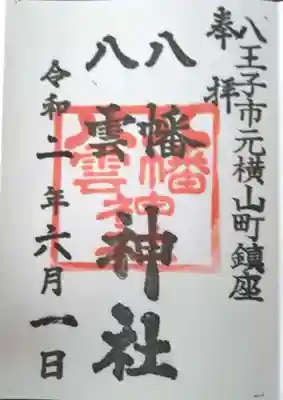 八王子市元横山町鎮座
奉拝
八幡
八雲
神社
令和二年六月一日
八幡
八雲
神社